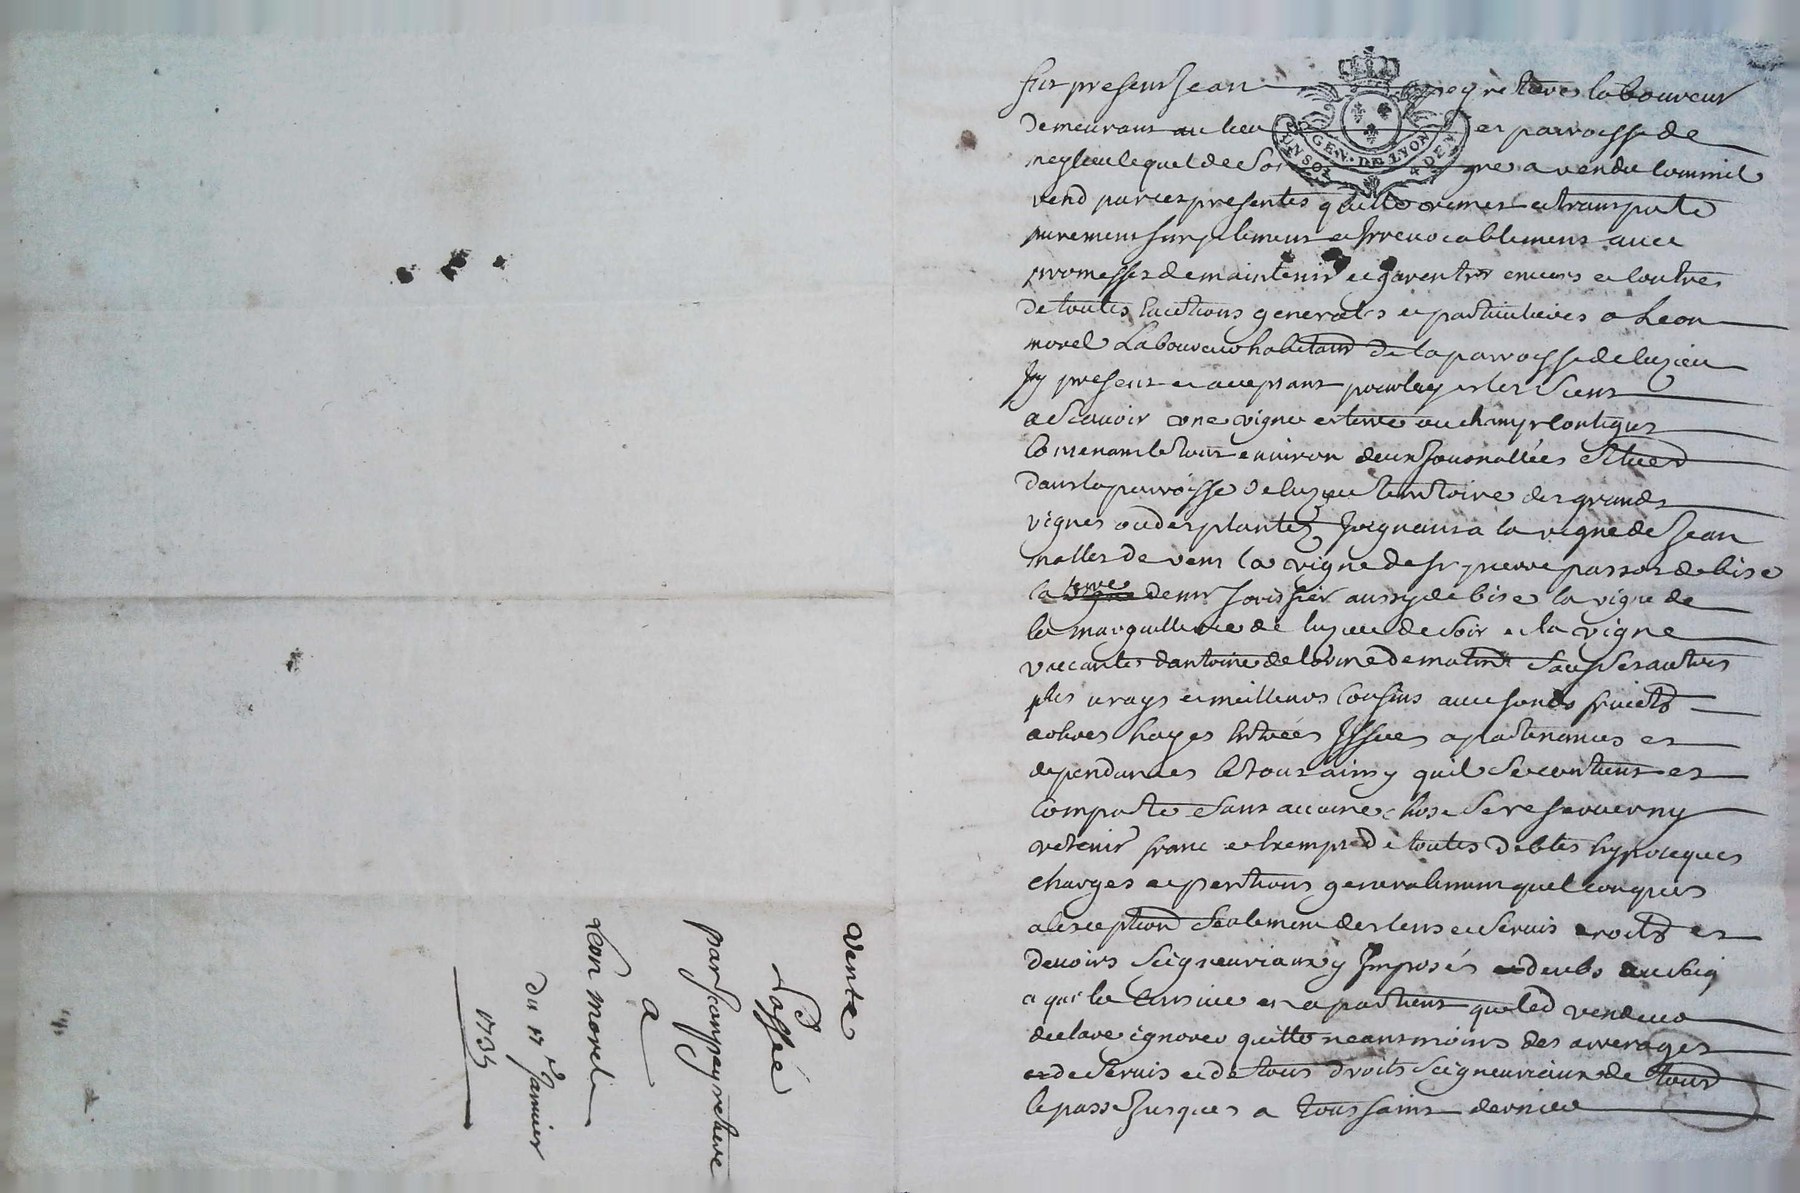 vente
passée
par Jean peyretieve
a
Leon morel
du 17e Janvier
1735
fut present Jean peyretieves laboureur
demeurant au lieu et parroisse de
lequel de son gre a vendu comme il
vend par ces presentes quitte remet et transporte
purement simplement et irrevocablement avec
promesses de maintenir et garentir envers et contres
de touttes evictions generales et particulieres a Leon
morel Laboureur habitant de la parroisse de luzieu
Icy present et acceptant pour luy et les siens
a scavoir une vigne et terre ou champs contigus
contenant le tout environ deux Journallées situés
dans la parroisse de luzieu territoire des grands
vignes ou des plantes Joignants a la vigne de Jean
malles de vent la vigne de sr pierre passot de bise
la terre de mr aussy de bise la vigne de
la marguillerie de luzieu de soir et la vigne
vaccante d'antoine de matin sauf ses autres
plus vrays et meilleurs confins avec fonds fruicts
arbres hayes entrées Issues apartenances et
dependances le tout ainsy quil se contient et
comporte sans aucune chose se reserver ny
retenir franc et exempt de toutes debtes hypoteques
charges et pentions generalement quelconques
a lexception seulement des cens et servis droits et
devoirs seigneuriaux y Imposés et deubs au seig
a qui la directe en apartient que led vendeur
declare ignorer quitte neantmoins des arrerages
de servis et de tous droits seigneuriaux de tout
le passé Jusques a toussaint dernier
GEN. DE LYON